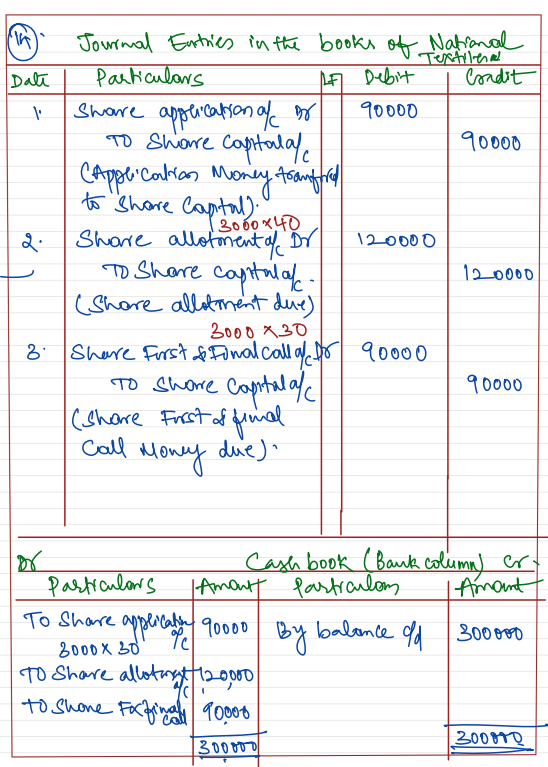 14.
Journal Entries in the books of National
Textiles
Date Particulars LF Debit Credit
1. Share application a/c Dr 90000
To Share Capital a/c 90000
(Application Money transfred
to Share Capital).
3000 x 40
2. Share allotment a/c Dr 120000
To Share capital a/c. 120000
(Share allotment due)
3000 x 30
3. Share First & Final call a/c Dr 90000
To Share Capital a/c 90000
(Share First & final
Call Money due).
Dr Cash book (Bank column) Cr.
Particulars Amount Particulars Amount
To Share application a/c 90000 By balance c/d 300000
3000 x 30
To Share allotment a/c 120000
To Share F & final call 90000
300000 300000